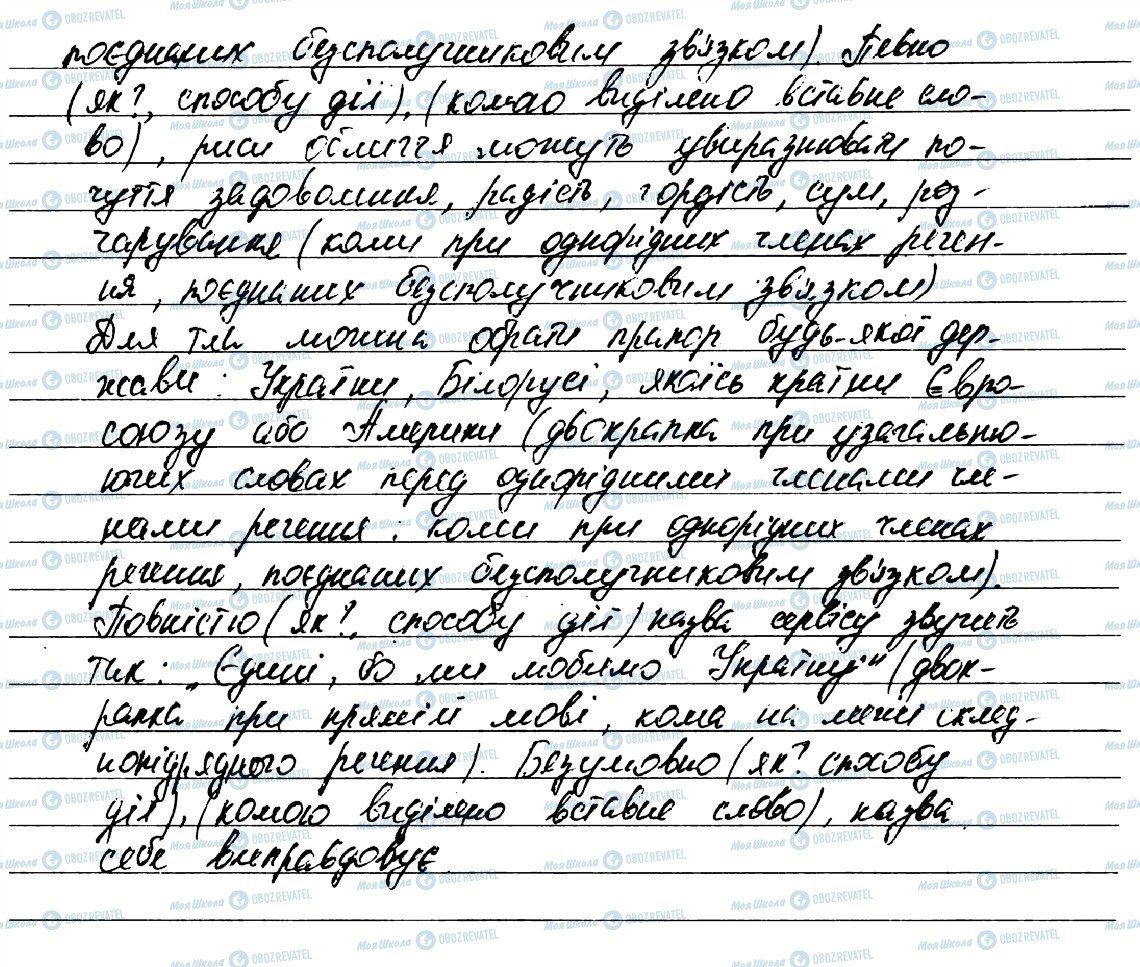 поєднаних безсполучниковим зв'язком) Певно
(як?, способу дії), (комою виділено вставне сло-
во), риси обличчя можуть увиразнювати по-
чуття задоволення, радість, гордість, сум, роз-
чарування (коми при однорідних членах речен-
ня, поєднаних безсполучниковим зв'язком)
Для тла можна обрати прапор будь-якої дер-
жави: України, Білорусі, якоїсь країни Євро-
союзу або Америки (двокрапка при узагальню-
ючих словах перед однорідними членами чле-
нами речення; коми при однорідних членах
речення, поєднаних безсполучниковим зв'язком).
Повністю (як?, способу дії) назва сервісу звучить
так: „Єдині, бо ми любимо Україну" (двок-
рапка при прямій мові, кома на межі склад-
нопідрядного речення). Безумовно (як? способу
дії), (комою виділено вставне слово), назва
себе виправдовує